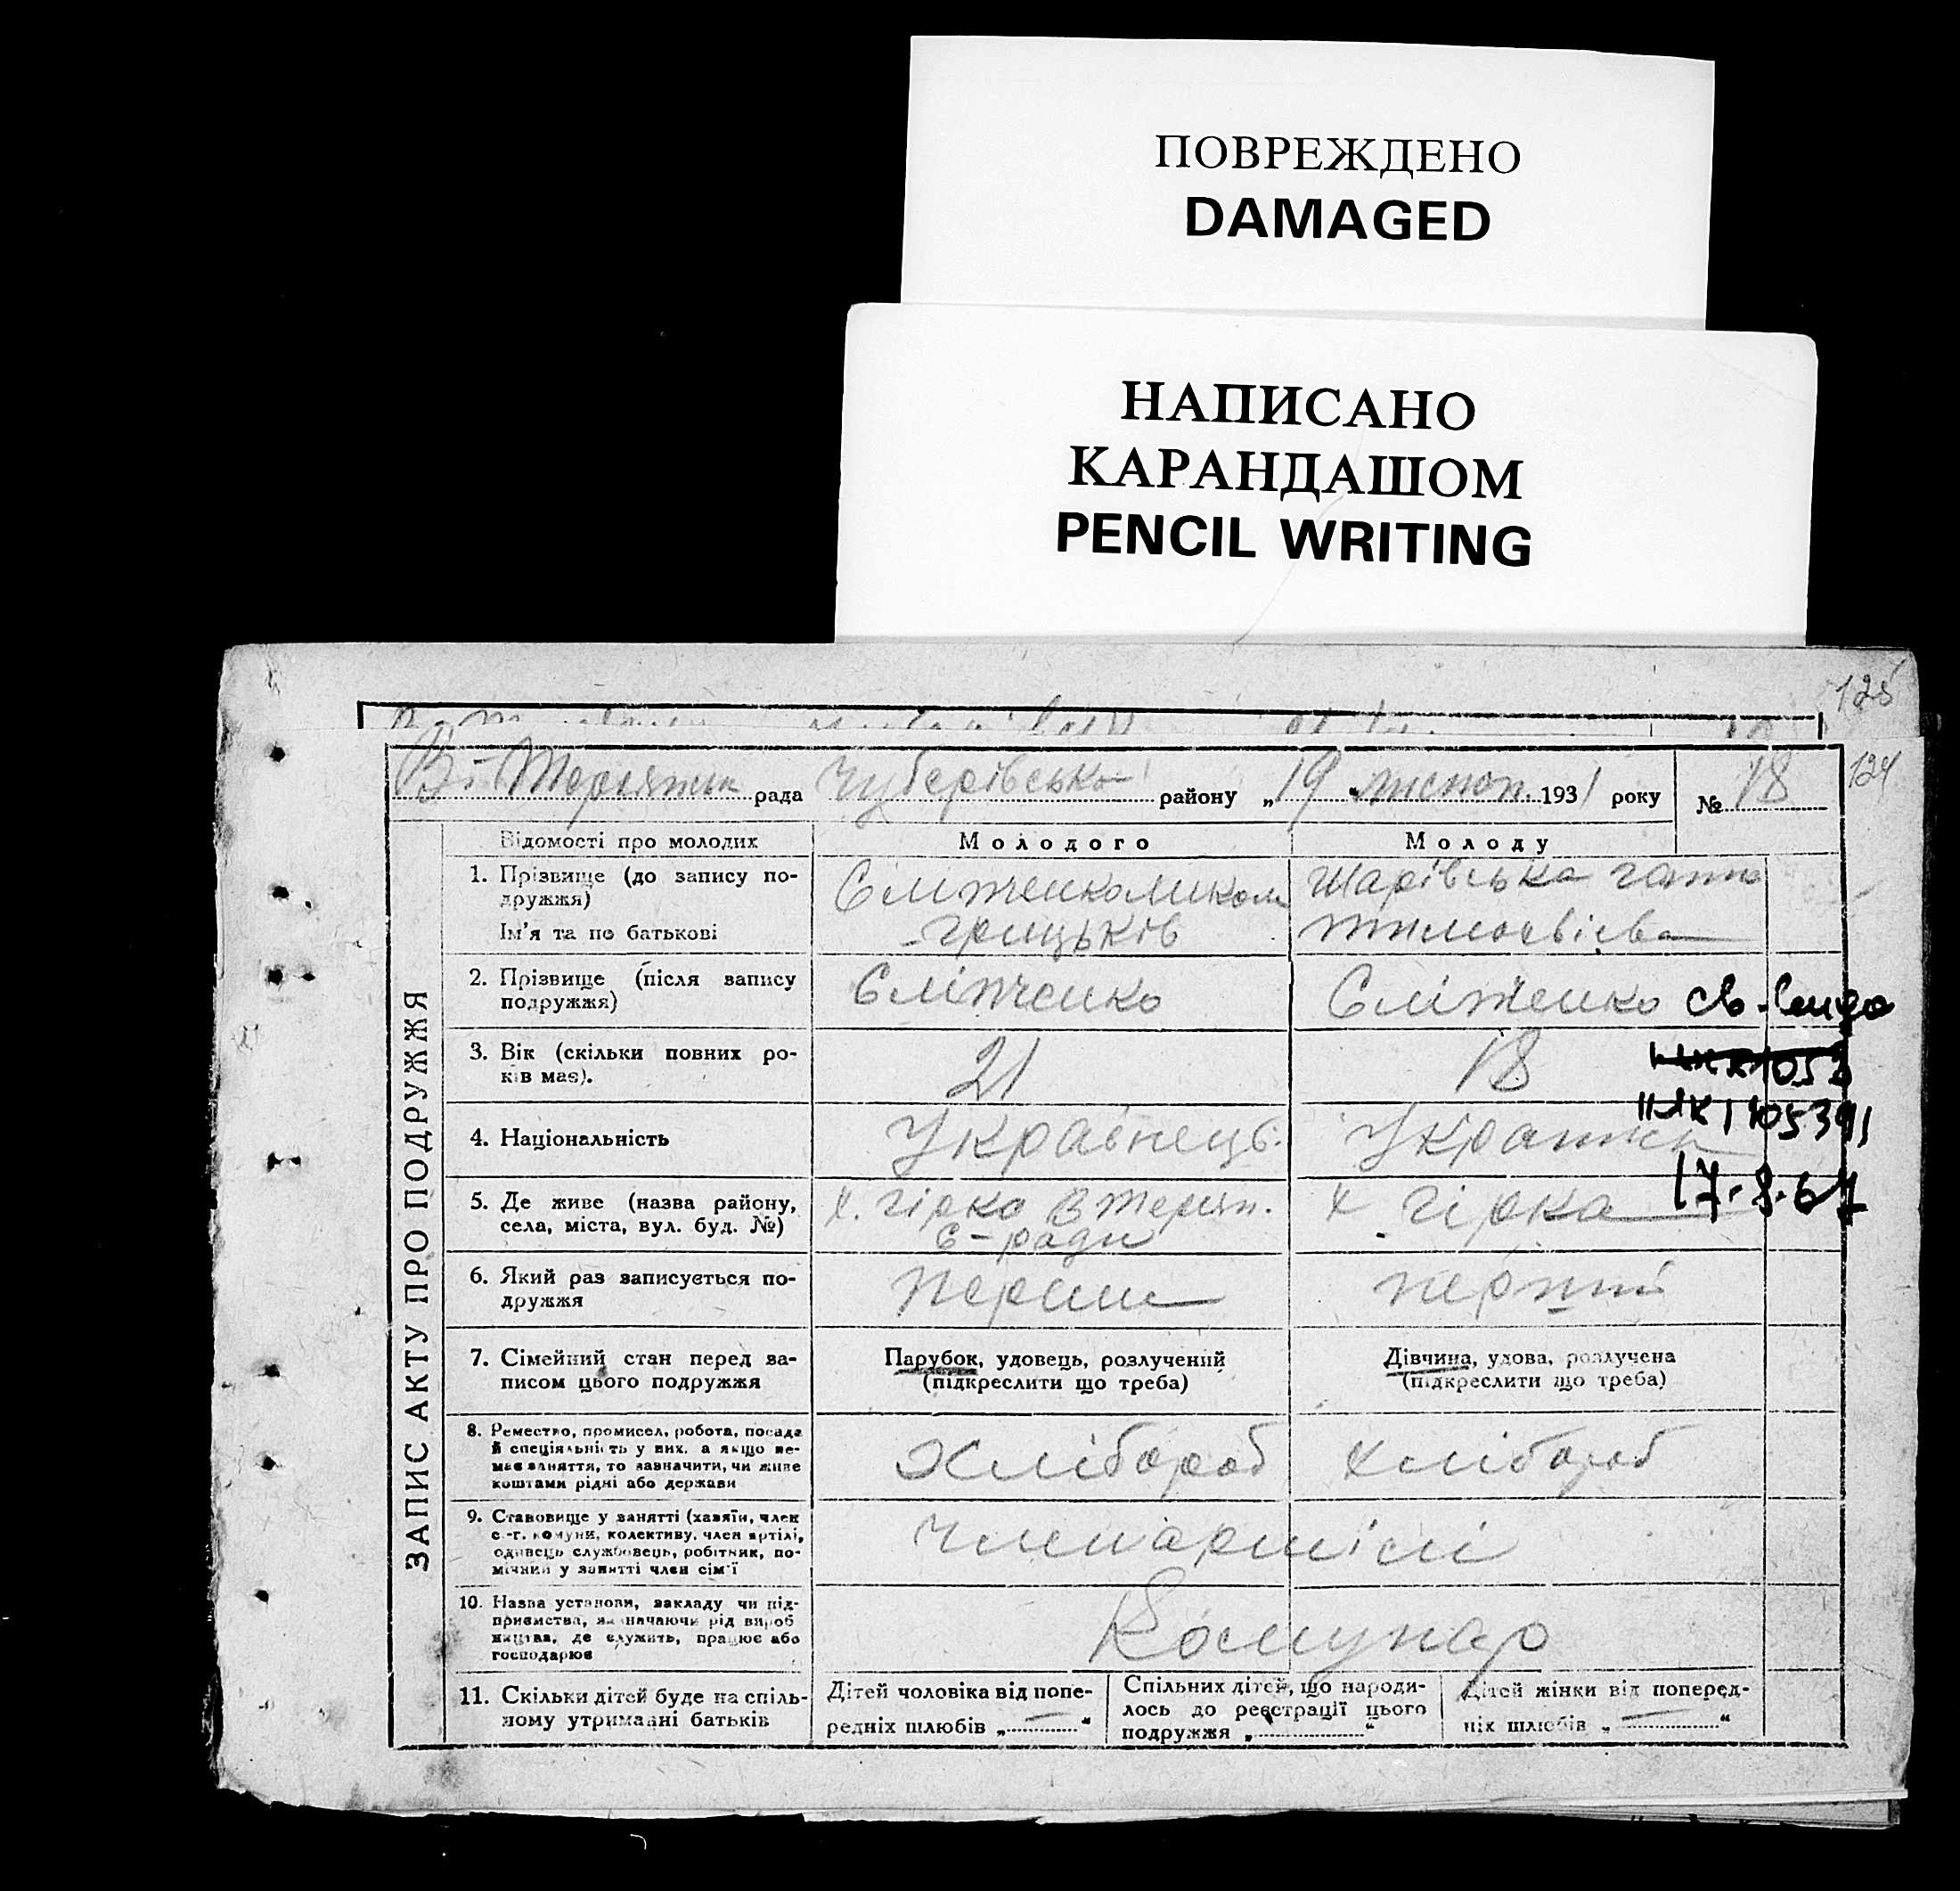 ПОВРЕЖДЕНО
DAMAGED
НАПИСАНО
КАРАНДАШОМ
PENCIL WRITING
125
124
рада Чубарівська району „19" листоп. 1931 року № 18
ЗАПИС АКТУ ПРО ПОДРУЖЖЯ
Відомості про молодих Молодого Молоду
1. Прізвище (до запису по-
дружжя)
Ім'я та по батькові
Шарівська
грицьків
2. Прізвище (після запису
подружжя)
3. Вік (скільки повних ро-
ків має).
21 18
4. Національність
Українець Українка
17.8.67
5. Де живе (назва району,
села, міста, вул. буд. №)
х. гірка В Терсян.
с-ради
х гірка
6. Який раз записується по-
дружжя
перший перший
7. Сімейний стан перед за-
писом цього подружжя
Парубок, удовець, розлучений
(підкреслити що треба)
Дівчина, удова, розлучена
(підкреслити що треба)
8. Ремество, промисел, робота, посада
й спеціяльність у них, а якщо не-
має заняття, то зазначити, чи живе
коштами рідні або держави
Хлібороб хлібороб
9. Становище у занятті (хазяїн, член
с.-г. комуни, колективу, член артілі,
одинець службовець, робітник, по-
мічний у занятті член сім'ї
член артілі
10. Назва установи, закладу чи під-
приємства, зазначаючи рід вироб
ництва, де служить, працює або
господарює
Комунар
11. Скільки дітей буде на спіль-
ному утриманні батьків
Дітей чоловіка від попе-
редніх шлюбів „—"
Спільних дітей, що народи-
лось до реєстрації цього
подружжя „ "
Дітей жінки від поперед-
ніх шлюбів „—"